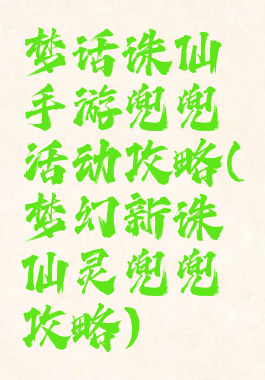 梦话诛仙
手游兜兜
活动攻略(
梦幻新诛
仙灵兜兜
攻略)